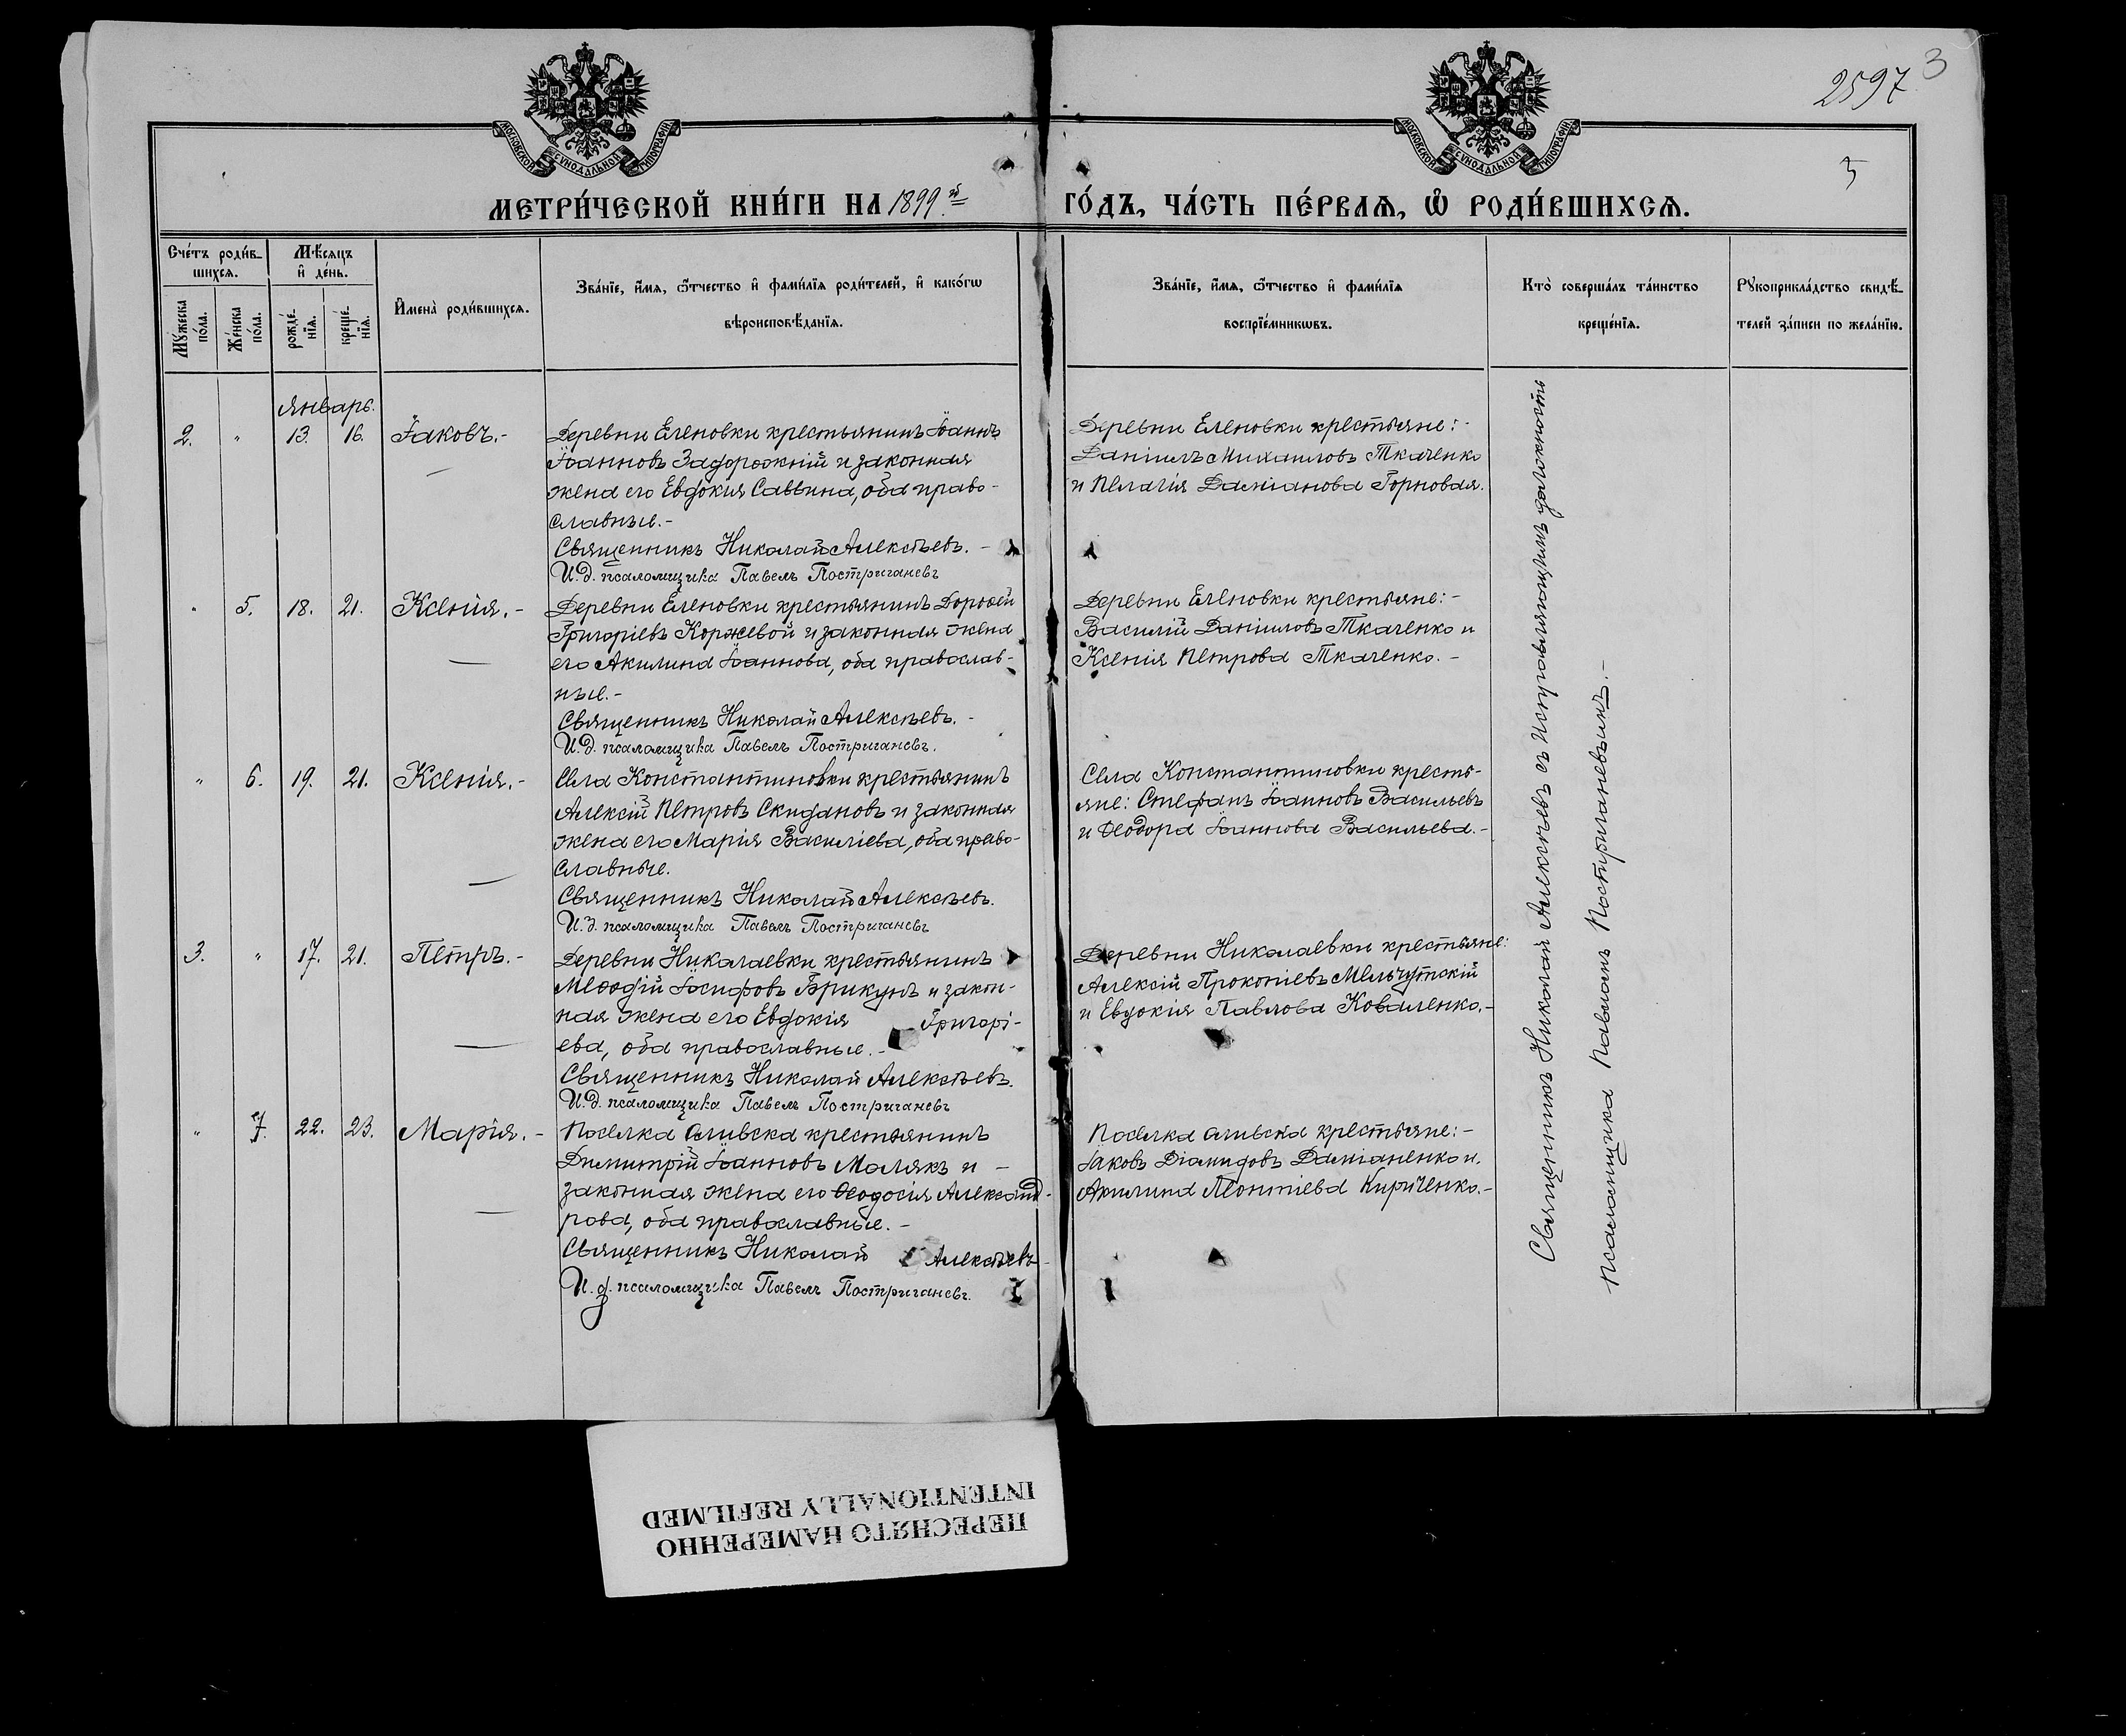 2597
3
5
МОСКОВСКОЙ СѴНОДАЛЬНОЙ ТИПОГРАФІИ
МОСКОВСКОЙ СѴНОДАЛЬНОЙ ТИПОГРАФІИ
МЕТРИ́ЧЕСКОЙ КНИ́ГИ НА 1899й
ГО́ДЪ, ЧА́СТЬ ПЕ́РВАѦ, Ѽ РОДИ́ВШИХСѦ.
Сче́тъ роди́в-
шихсѧ.
Мꙋ́жеска
по́ла.
Же́нска
по́ла.
Мѣ́сѧцъ
и҆ де́нь.
рожде́-
нїѧ.
креще́-
нїѧ.
И҆мена̀ роди́вшихсѧ.
Зва́нїе, и҆́мѧ, ѻ҆́тчество и҆ фами́лїѧ роди́телей, и҆ како́гѡ
вѣроисповѣ́данїѧ.
Зва́нїе, и҆́мѧ, ѻ҆́тчество и҆ фами́лїѧ
воспрїе́мникѡвъ.
Кто̀ соверша́лъ та́инство
креще́нїѧ.
Рꙋкоприкла́дство свидѣ́-
телей за́писи по жела́нїю.
Январь.
2. " 13. 16. Іаковъ.-
Деревни Еленовки крестьянинъ Іоаннъ
Іоанновъ Задорожній и законная
жена его Евдокия Саввина, оба право-
славные.-
Священникъ Николай Алексѣевъ.-
И.д. псаломщика Павелъ Постригачевъ
Деревни Еленовки крестьяне:-
Даніилъ Михаиловъ Ткаченко
и Пелагія Даміанова Горновая.
" 5. 18. 21. Ксенія.-
Деревни Еленовки крестьянинъ Дорофей
Григоріевъ Коржевой и законная жена
его Акилина Іоаннова, оба православ-
ные.-
Священникъ Николай Алексѣевъ.-
И.д. псаломщика Павелъ Постригачевъ.
Деревни Еленовки крестьяне:-
Василій Даніиловъ Ткаченко и
Ксенія Петрова Ткаченко.-
" 6. 19. 21. Ксенія.-
Села Константиновки крестьянинъ
Алексій Петровъ Скидановъ и законная
жена его Марія Василіева, оба право-
славные.
Священникъ Николай Алексѣевъ.
И.д. псаломщика Павелъ Постригачевъ
Села Константиновки кресть-
яне: Стефанъ Іоанновъ Васильевъ
и Ѳеодора Іоаннова Васильева.-
3. " 17. 21. Петръ.-
Деревни Николаевки крестьянинъ
Меѳодій Іосифовъ Брикунъ и закон-
ная жена его Евдокія Григорі-
ева, оба православные.-
Священникъ Николай Алексѣевъ.
И.д. псаломщика Павелъ Постригачевъ
Деревни Николаевки крестьяне:
Алексій Прокопіевъ
и Евдокія Павлова Коваленко.-
" 7. 22. 23. Марія.-
Поселка крестьянинъ
Димитрій Іоанновъ Малякъ и -
законная жена его Ѳеодосія Александ-
рова, оба православные.-
Священникъ Николай Алексѣевъ
И.д. псаломщика Павелъ Постригачевъ.
Поселка крестьяне:-
Іаковъ Діамидовъ Даміаненко и
Акилина Леонтіева Кириченко.-
Священникъ Николай Алексѣевъ съ исправляющимъ должность
псаломщика Павломъ Постригачевымъ.-
ПЕРЕСНЯТО НАМЕРЕННО
INTENTIONALLY REFILMED